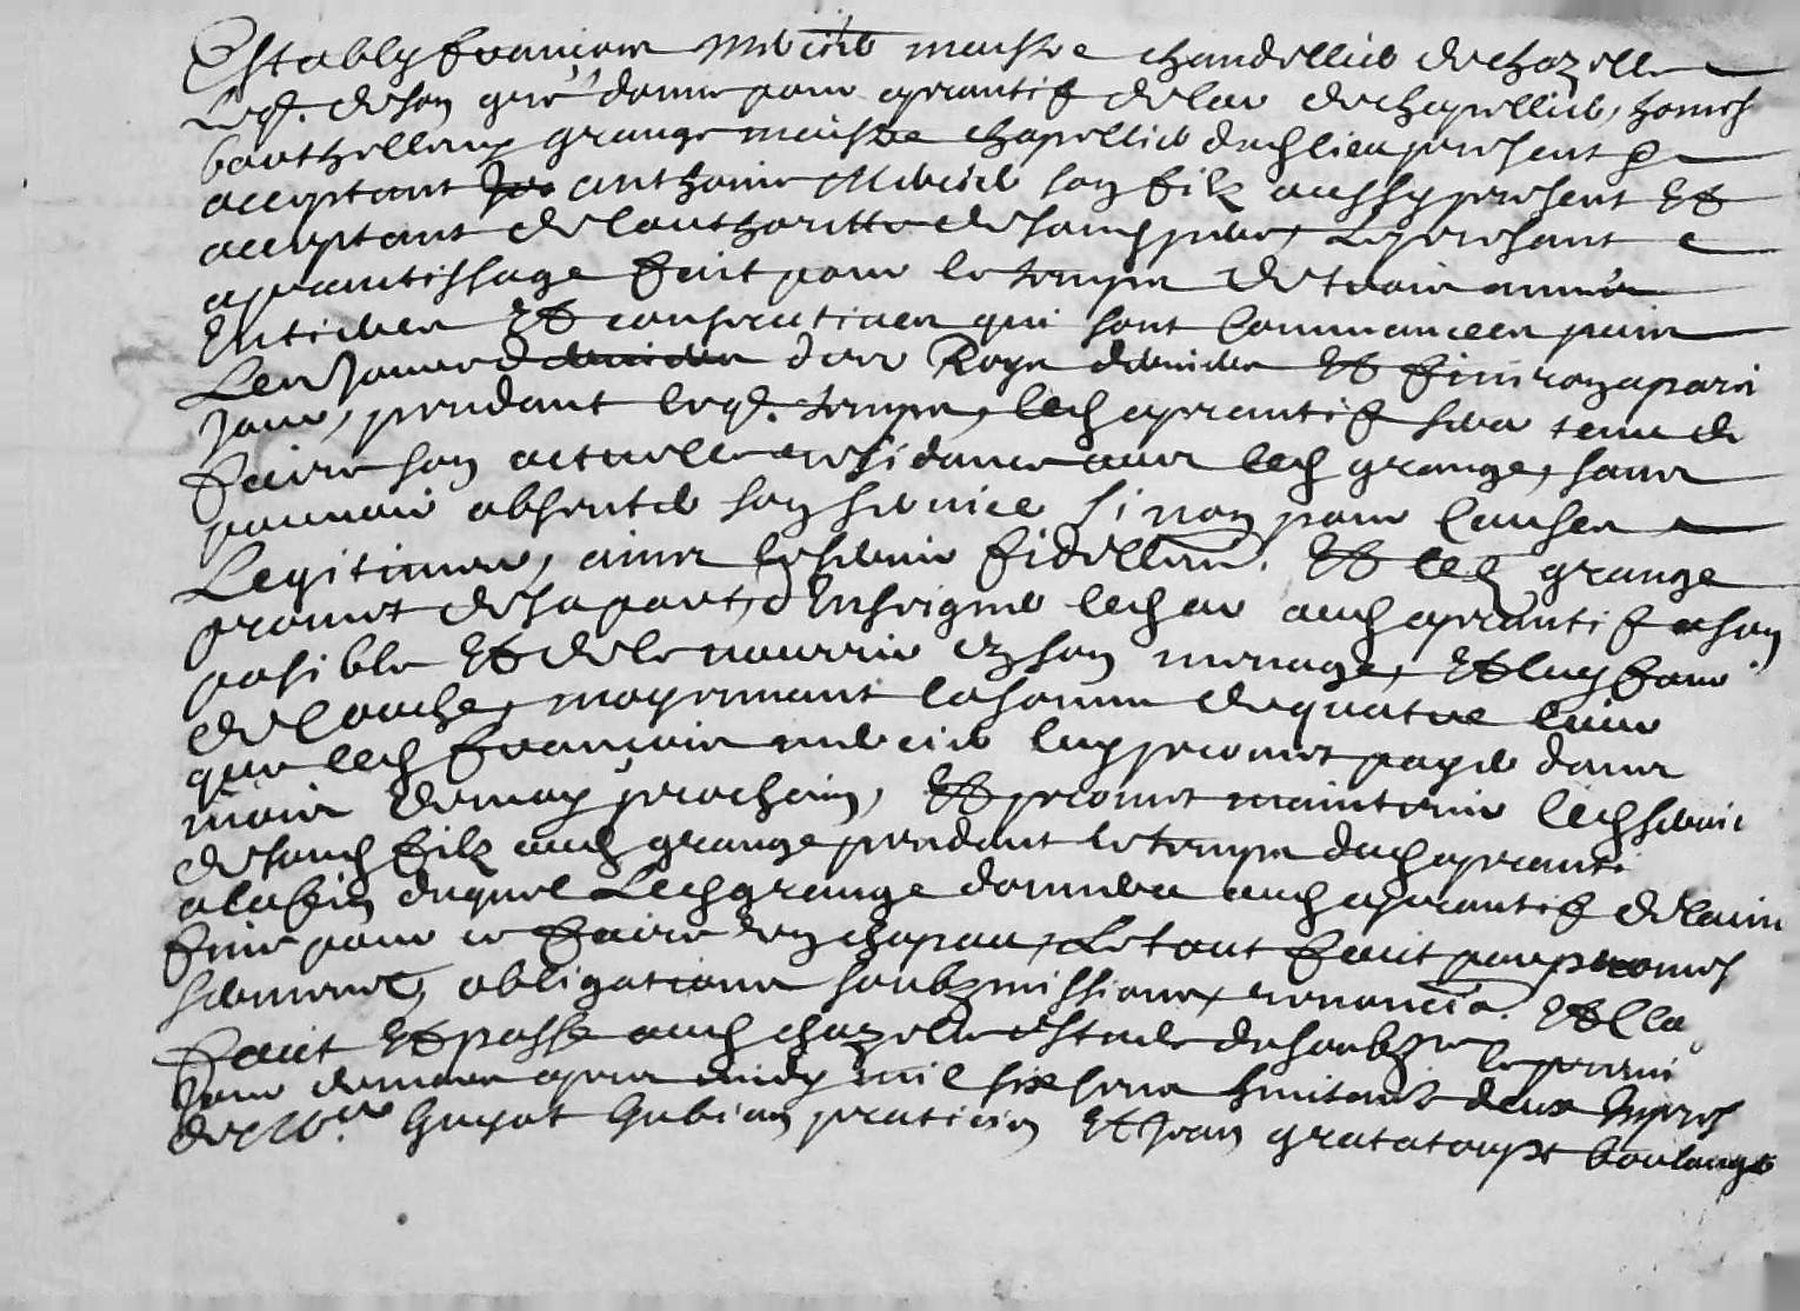 Estably francois Mercier maistre chandellier de chazelle
Leq. de son gré donne pour aprantif de lar de chapellier, honn
barthellemy grange maistre chapellier dud lieu present &
acceptant anthoine Mercier son filz aussy present Et
acceptant de lauthoritte de sond pere, Le present
aprantissage fait pour le temps de trois annees
Entieres Et consecutives qui sont Commancees puis
Les Jour des Roys dernier Et finiront a pareil
Jour, pendant leq. temps, led aprantif sera tenu de
faire son actuelle residance avec led grange, sans
pouvoir absenter son service sinon pour Causes
Legitimes, ains le servir fidellem. Et led grange
promet de sa part, d'Enseigner led ar aud aprantif a son
posible Et de le nourrir en son menage, Et luy four
de couche, moyennant la somme de quatre livre
que led francois mercier luy promet payer dans
mois de may prochain, Et promet maintenir led servic
de sond filz aud grange pendant le temps dud apranti
a la fin duquel Led grange donnera aud aprantif de laine
fine pour se faire un chapeau, Le tout fait par promes
serment, obligations soubzmissions, renoncia. Et Cla
fait Et passé aud chazelle estude du soubzne le premi
Jour de mars apres midy mil six sens huitante deux En pres
de Mre Guyot Gubian praticien Et Jean gratatoupt boulanger